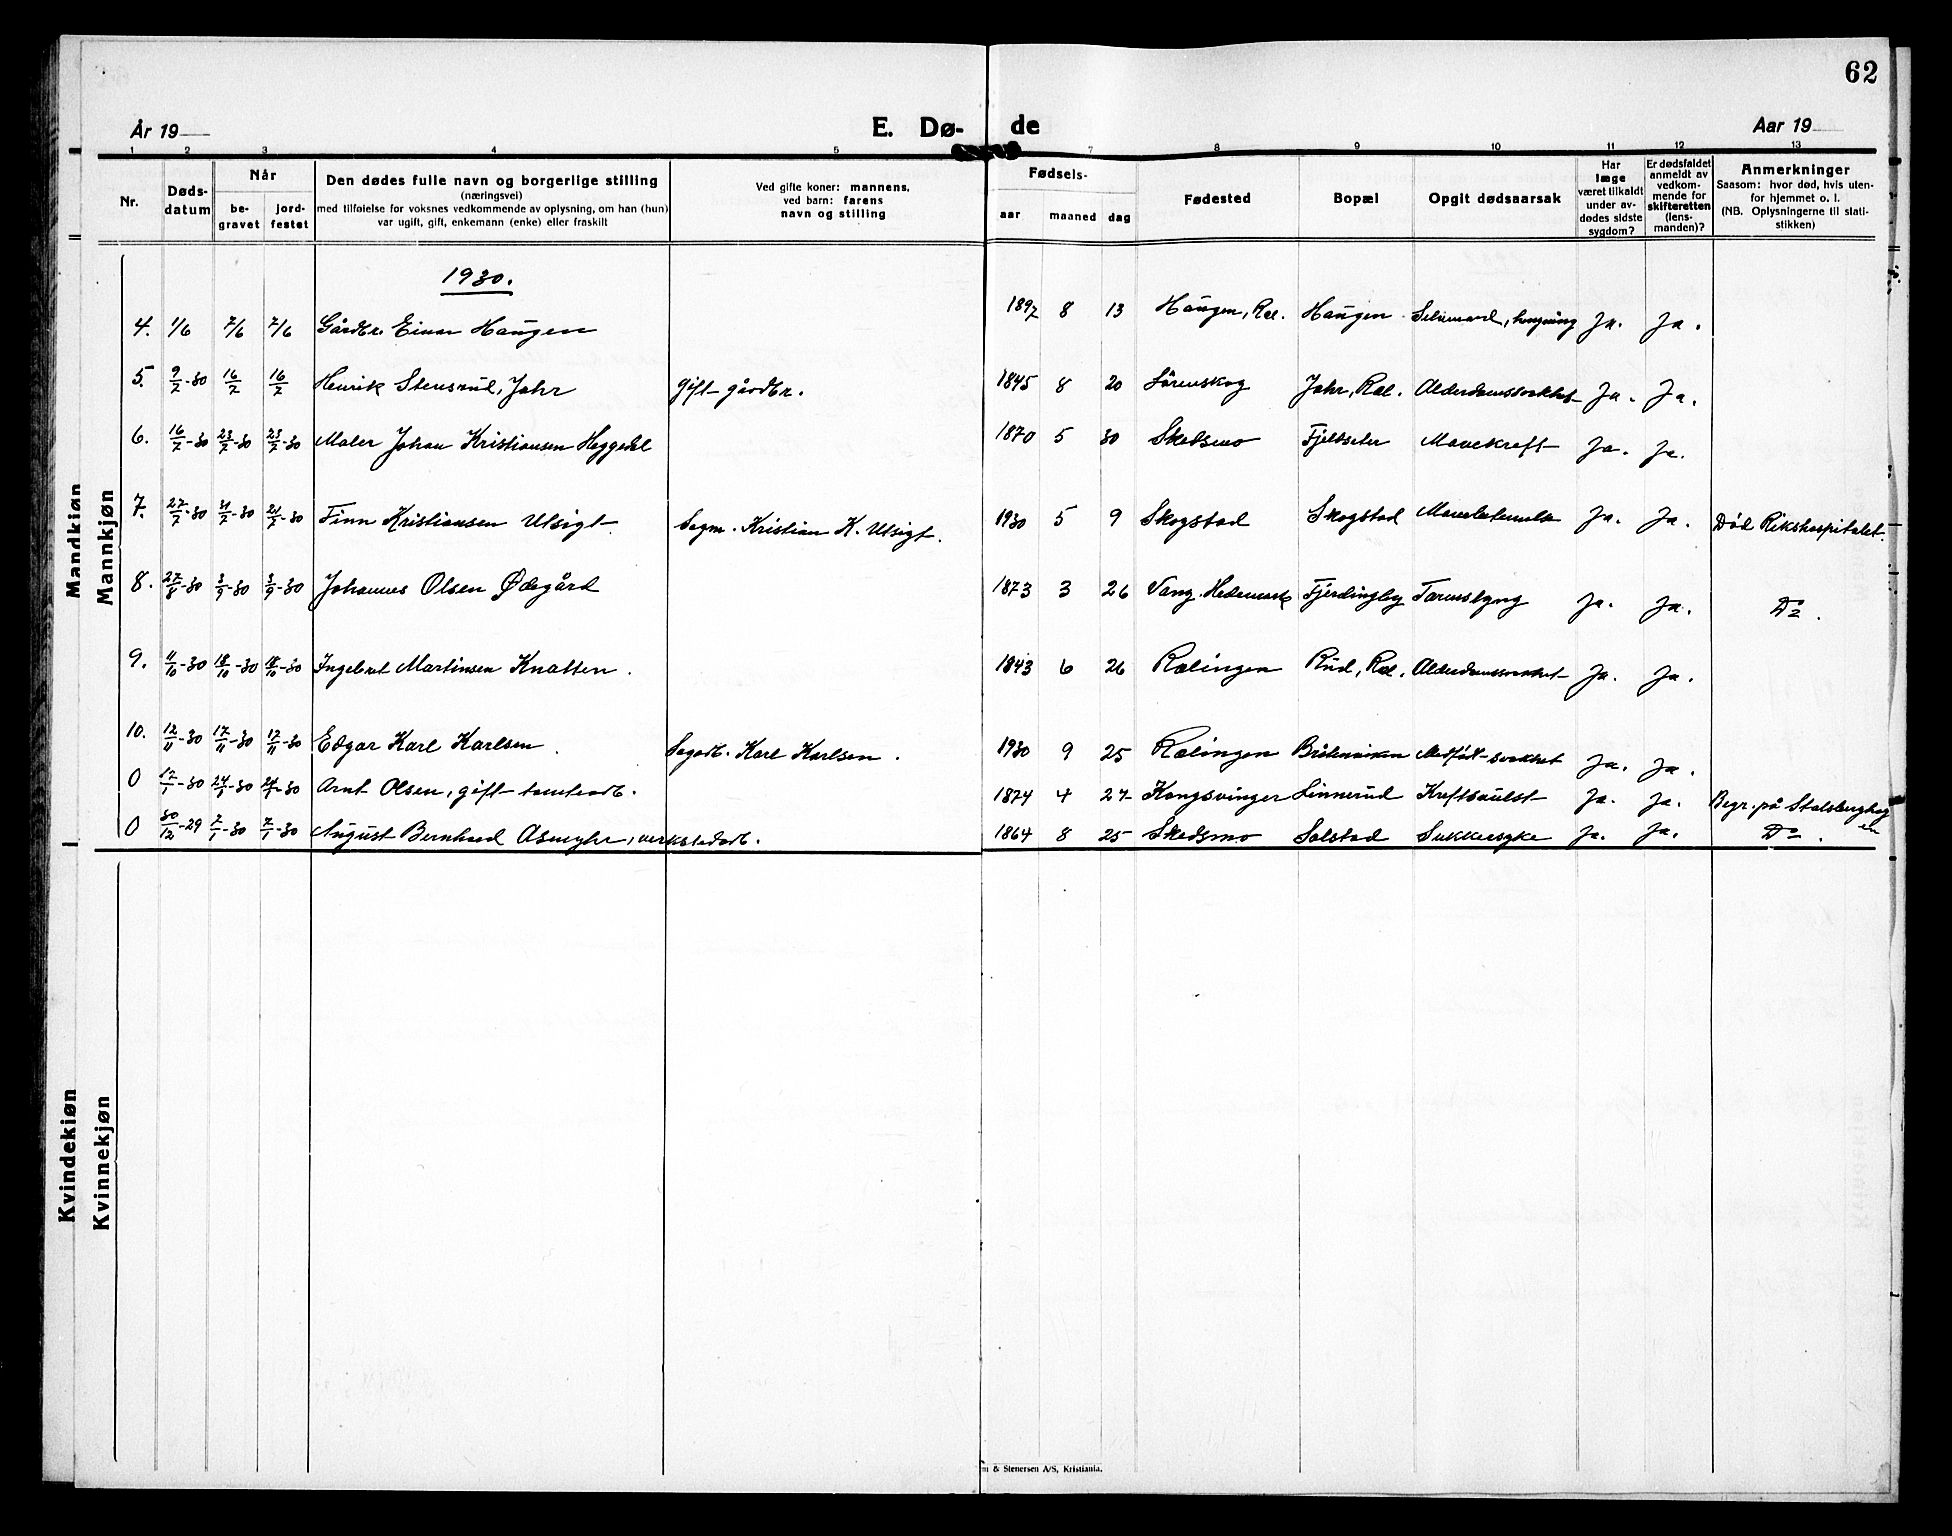 62
År 19
E. Dø- de
Aar 19
1 2 3 4 5 7 8 9 10 11 12 13
Nr.
Døds-
datum
Når
be-
gravet
jord-
festet
Den dødes fulle navn og borgerlige stilling
(næringsvei)
med tilføielse for voksnes vedkommende av oplysning, om han (hun)
var ugift, gift, enkemann (enke) eller fraskilt
Ved gifte koner: mannens,
ved barn: farens
navn og stilling
Fødsels-
aar maaned dag
Fødested
Bopæl
Opgit dødsaarsak
Har
læge
været tilkaldt
under av-
dødes sidste
sygdom?
Er dødsfaldet
anmeldt av
vedkom-
mende for
skifteretten
(lens-
manden)?
Anmerkninger
Saasom: hvor død, hvis uten-
for hjemmet o. l.
(NB. Oplysningerne til stati-
stikken)
Mandkjøn
Mannkjøn
1930.
4. 1/6 7/6 7/6 Gårdbr. Einar Haugen 1897 8 13 Haugen, Ræl. Haugen Selvmord, hengning Ja. Ja.
5. 9/7-30 16/7 16/7 Henrik Stensrud, Jahr gift gårdbr. 1845 8 20 Lörenskog Jahr, Ræl. Alderdomssvakhet Ja. Ja.
6. 16/7-30 23/7-30 23/7-30 Maler Johan Kristiansen Heggedal 1870 5 30 Skedsmo Fjeldseter Mavekreft Ja. Ja.
7. 27/7-30 31/7-30 31/7-30 Finn Kristiansen Utsigt Sagm. Kristian K. Utsigt. 1930 5 9 Skogstad Skogstad Ja. Ja. Död Rikshospitalet.
8. 27/8-30 3/9-30 3/9-30 Johannes Olsen Ødegård 1873 3 26 Vang, Hedemark Fjerdingby Tarmslyng Ja. Ja. Do.
9. 11/10-30 18/10-30 18/10-30 Ingebret Martinsen Knatten. 1843 6 26 Rælingen Rud, Ræl. Alderdomssvakhet Ja. Ja.
10. 12/11-30 17/11-30 17/11-30 Edgar Karl Karlsen Sagarb. Karl Karlsen. 1930 9 25 Rælingen Bråteveien Medfødt svakhet Ja. Ja.
0 17/1-30 24/1-30 24/1-30 Arnt Olsen, gift tomtearb. 1874 4 27 Kongsvinger Linnerud Kreftsvulst Ja. Ja. Begr. på Stalsberghag
en
0 30/12-29 7/1-30 7/1-30 August Bernhard Asmyhr, verkstedarb. 1864 8 25 Skedsmo Solstad Sukkersyke Ja. Ja. Do.
Kvindekjøn
Kvinnekjøn
m & Stenersen A/S, Kristiania.